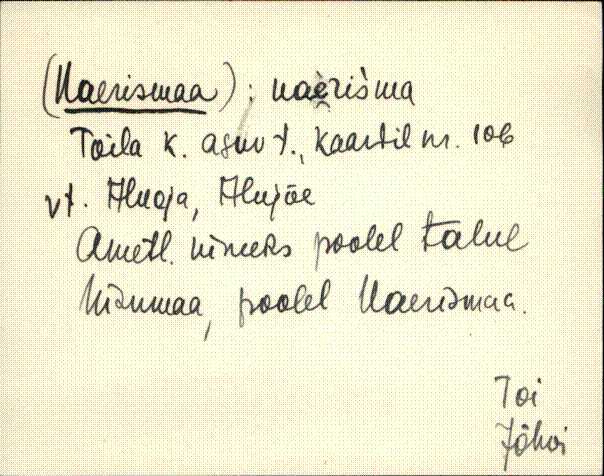 (Naerismaa) : naèrìsma
Toila k. asuv t., kaardil nr. 106
vt. Aluoja, Alujõe
Ametl. nimeks poolel talul
Niinumaa, poolel Naerismaa.
Toi
Jõhvi